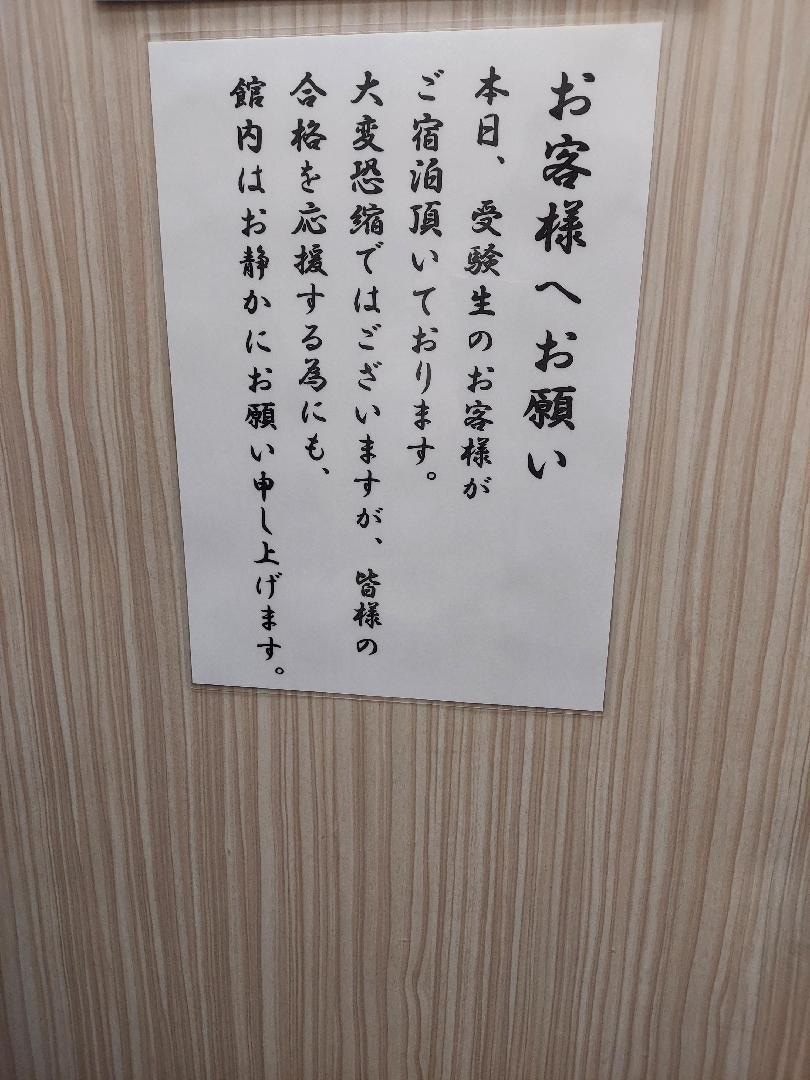 お客様へお願い
本日、受験生のお客様が
ご宿泊頂いております。
大変恐縮ではございますが、皆様の
合格を応援する為にも、
館内はお静かにお願い申し上げます。